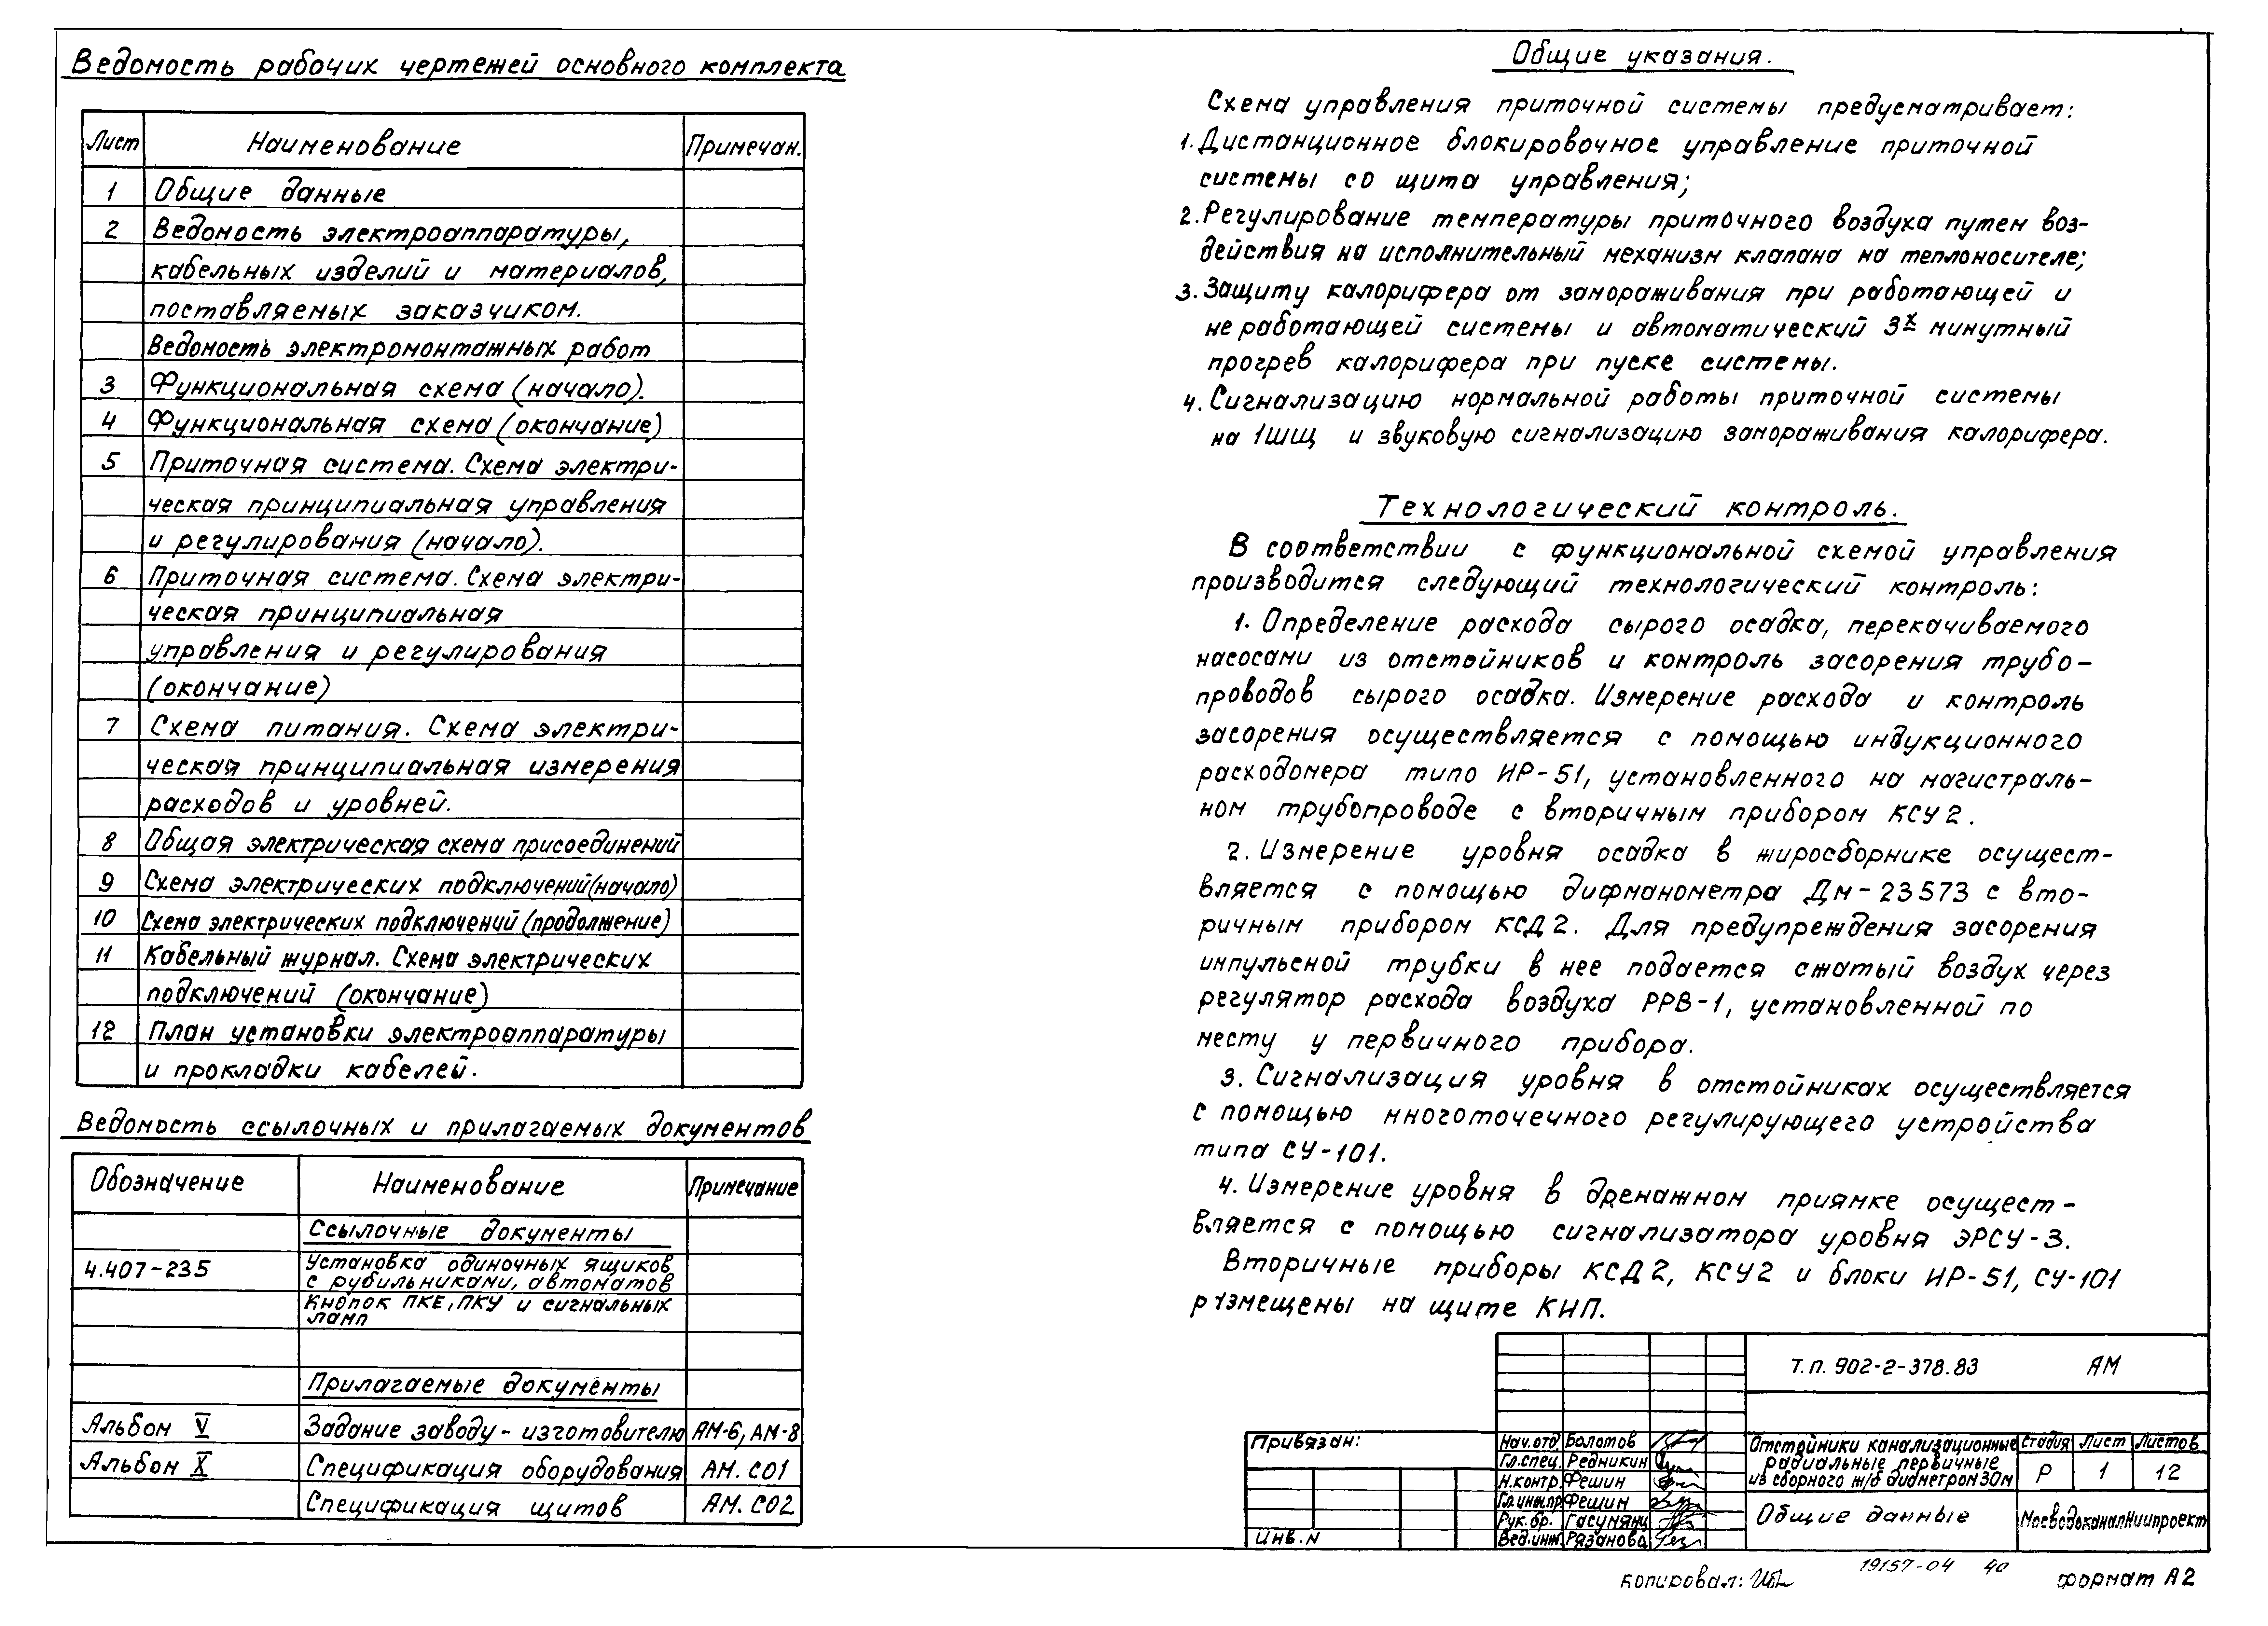 Ведомость рабочих чертежей основного комплекта
Лист Наименование Примечан.
1 Общие данные
2 Ведомость электроаппаратуры,
кабельных изделий и материалов,
поставляемых заказчиком.
Ведомость электромонтажных работ
3 Функциональная схема (начало).
4 Функциональная схема (окончание)
5 Приточная система. Схема электри-
ческая принципиальная управления
и регулирования (начало).
6 Приточная система. Схема электри-
ческая принципиальная
управления и регулирования
(окончание)
7 Схема питания. Схема электри-
ческая принципиальная измерения
расходов и уровней.
8 Общая электрическая схема присоединений
9 Схема электрических подключений (начало)
10 Схема электрических подключений (продолжение)
11 Кабельный журнал. Схема электрических
подключений (окончание)
12 План установки электроаппаратуры
и прокладки кабелей.
Ведомость ссылочных и прилагаемых документов
Обозначение Наименование Примечание
Ссылочные документы
4.407-235 Установка одиночных ящиков
с рубильниками, автоматов
Кнопок ПКЕ, ПКУ и сигнальных
ламп
Прилагаемые документы
Альбом V Задание заводу - изготовителю АМ-6, АМ-8
Альбом X Спецификация оборудования АМ. СО1
Спецификация щитов АМ. СО2
Общие указания.
Схема управления приточной системы предусматривает:
1. Дистанционное блокировочное управление приточной
системы со щита управления;
2. Регулирование температуры приточного воздуха путем воз-
действия на исполнительный механизм клапана на теплоносителе;
3. Защиту калорифера от замораживания при работающей и
не работающей системы и автоматический 3х минутный
прогрев калорифера при пуске системы.
4. Сигнализацию нормальной работы приточной системы
на 1ШЩ и звуковую сигнализацию замораживания калорифера.
Технологический контроль.
В соответствии с функциональной схемой управления
производится следующий технологический контроль:
1. Определение расхода сырого осадка, перекачиваемого
насосами из отстойников и контроль засорения трубо-
проводов сырого осадка. Измерение расхода и контроль
засорения осуществляется с помощью индукционного
расходомера типо ИР-51, установленного на магистраль-
ном трубопроводе с вторичным прибором КСУ 2.
2. Измерение уровня осадка в жиросборнике осущест-
вляется с помощью дифманометра ДМ-23573 с вто-
ричным прибором КСД 2. Для предупреждения засорения
импульсной трубки в нее подается сжатый воздух через
регулятор расхода воздуха РРВ-1, установленной по
месту у первичного прибора.
3. Сигнализация уровня в отстойниках осуществляется
с помощью многоточечного регулирующего устройства
типа СУ-101.
4. Измерение уровня в дренажном приямке осущест-
вляется с помощью сигнализатора уровня ЭРСУ-3.
Вторичные приборы КСД 2, КСУ2 и блоки ИР-51, СУ-101
размещены на щите КИП.
Т.п. 902-2-378.83 АМ
Привязан:
Инв. N
Нач.отд Болотов
Гл.спец. Редникин
Н.контр. Фешин
Гл.инж.пр. Фешин
Рук. бр. Гасумянц
Вед.инж. Рязанова
Отстойники канализационные
радиальные первичные
из сборного ж/б диаметром 30м
Стадия Лист Листов
Р 1 12
Общие данные
МосводоканалНиипроект
Копировал:
19157-04 40
формат А2